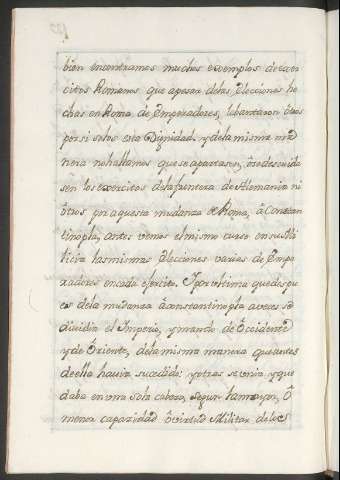 bien encontramos muchos exemplos de exer
citos Romanos que apesar delas Elecciones he
chas en Roma de Emperadores, lebantaron otros
por si solos esta Dignidad. y dela misma ma
nera no hallamos que se apartasen, ò se descuida
sen los exercitos dela frontera de Alemania ni
otros por aquesta mudanza de Roma, à Constan
tinopla, antes vemos el mismo curso en su Mi
licia las mismas Elecciones varias de Empe
radores en cada exercito. Y por vltimo que despu
es dela mudanza à Constantinopla aveces se
dividia el Imperio, y mando de Occidente
y de Oriente, dela misma manera que antes
de ella havia sucedido: y otras se vnia y que
daba en vna sola cabeza, segun la mayor, ò
menor capazidad ò virtud Militar delos